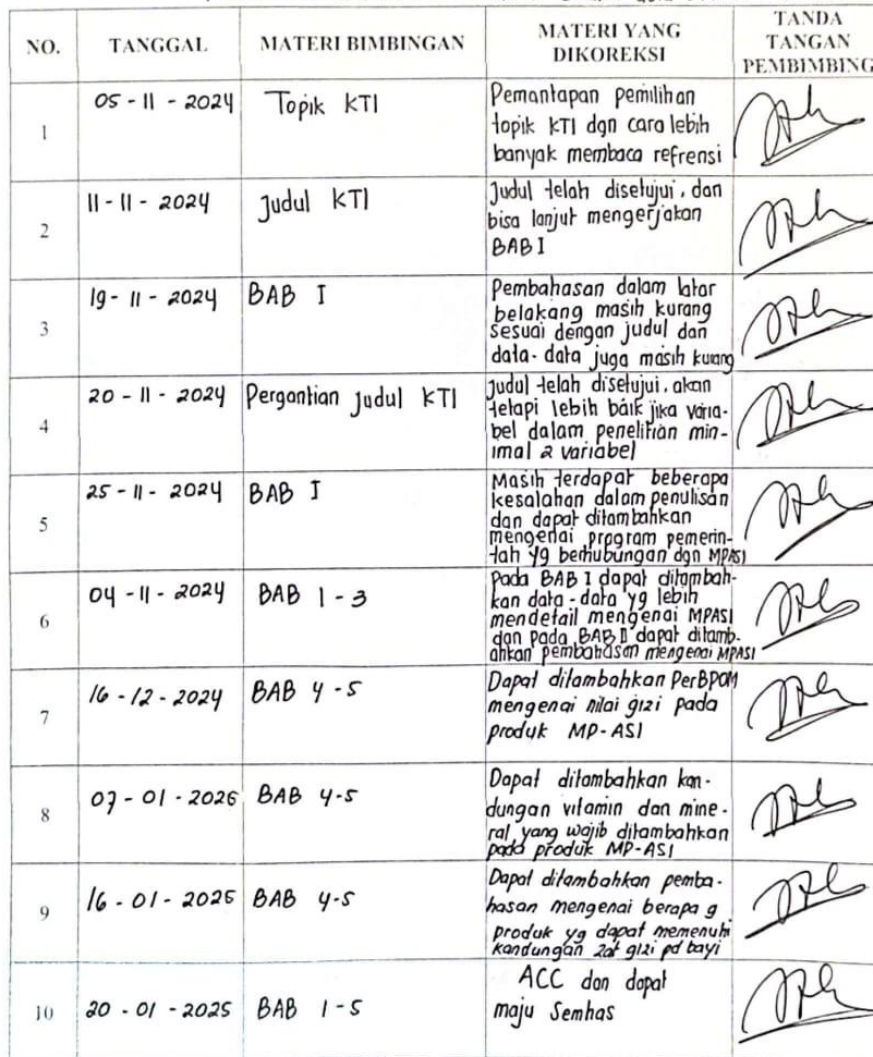 NO.
TANGGAL
MATERI BIMBINGAN
MATERI YANG
DIKOREKSI
TANDA
TANGAN
PEMBIMBING
1
05 - 11 - 2024
Topik KTI
Pemantapan pemilihan
topik KTI dgn cara lebih
banyak membaca refrensi
2
11 - 11 - 2024
Judul KTI
Judul telah disetujui, dan
bisa lanjut mengerjakan
BAB I
3
19 - 11 - 2024
BAB I
Pembahasan dalam latar
belakang masih kurang
sesuai dengan judul dan
data-data juga masih kurang
4
20 - 11 - 2024
Pergantian Judul KTI
Judul telah disetujui, akan
tetapi lebih baik jika varia-
bel dalam penelitian min-
imal 2 variabel
5
25 - 11 - 2024
BAB I
Masih terdapat beberapa
kesalahan dalam penulisan
dan dapat ditambahkan
mengenai program pemerin-
tah yg berhubungan dgn MPASI
6
04 - 11 - 2024
BAB 1 - 3
Pada BAB I dapat ditambah-
kan data-data yg lebih
mendetail mengenai MPASI
dan pada BAB II dapat ditamb-
ahkan pembahasan mengenai MPASI
7
16 - 12 - 2024
BAB 4 - 5
Dapat ditambahkan PerBPOM
mengenai nilai gizi pada
produk MP-ASI
8
07 - 01 - 2025
BAB 4-5
Dapat ditambahkan kan-
dungan vitamin dan mine-
ral yang wajib ditambahkan
pada produk MP-ASI
9
16 - 01 - 2025
BAB 4-5
Dapat ditambahkan pemba-
hasan mengenai berapa g
produk yg dapat memenuhi
kandungan zat gizi pd bayi
10
20 - 01 - 2025
BAB 1-5
ACC dan dapat
maju Semhas